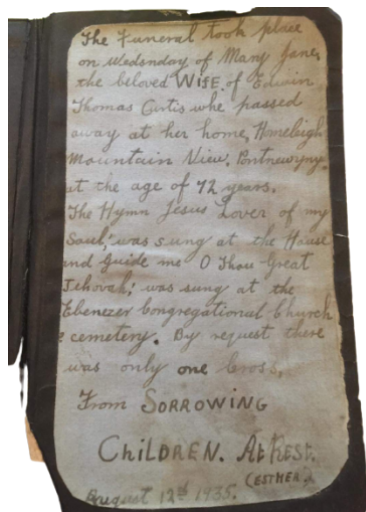 The Funeral took place
on Wedsnday of Mary Jane,
the beloved WIFE. of Edwin
Thomas Curtis who passed
away at her home, Homeleigh
Mountain View, Pontnewyny.
at the age of 72 years.
The Hymn Jesus Lover of my
Soul," was sung at the House
and Guide me O Thou Great
Jehovah," was sung at the
Ebenezer Congregational Church
cemetery. By request there
was only one Cross.
From SORROWING
ChiLDREN. At Rest.
(ESTHER.)
August 12th 1935.